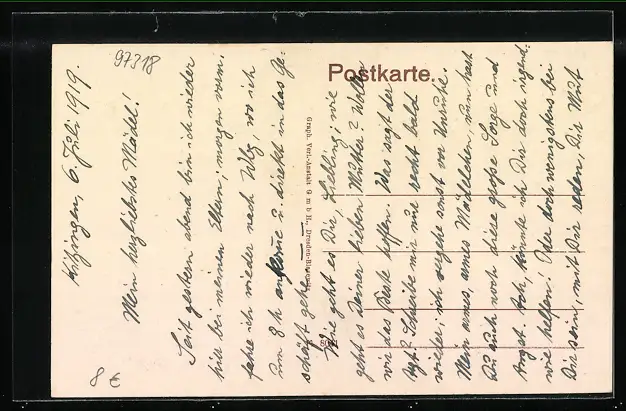 97318
Postkarte.
Kitzingen, 6. Juli 1919.
Mein herzliebstes Mädel!
Seit gestern abend bin ich wieder
hier bei meinen Eltern; morgen vorm.
fahre ich wieder nach Wbg, wo ich
um 8 h ankomme u. direkt in das Ge-
schäft gehe.
Wie geht es Dir, Liebling; wie
geht es Deiner lieben Mutter? Wollen
wir das Beste hoffen. Was sagt der
Arzt? Schreibe mir nur recht bald
wieder; ich vergehe sonst vor Unruhe.
Mein armes, armes Mädelchen, nun hast
Du auch noch diese große Sorge und
Angst. Ach, könnte ich Dir doch irgend-
wie helfen! Oder doch wenigstens bei
Dir sein, mit Dir reden, Dir Mut
Graph. Verl.-Anstalt G m b H., Dresden
8 €